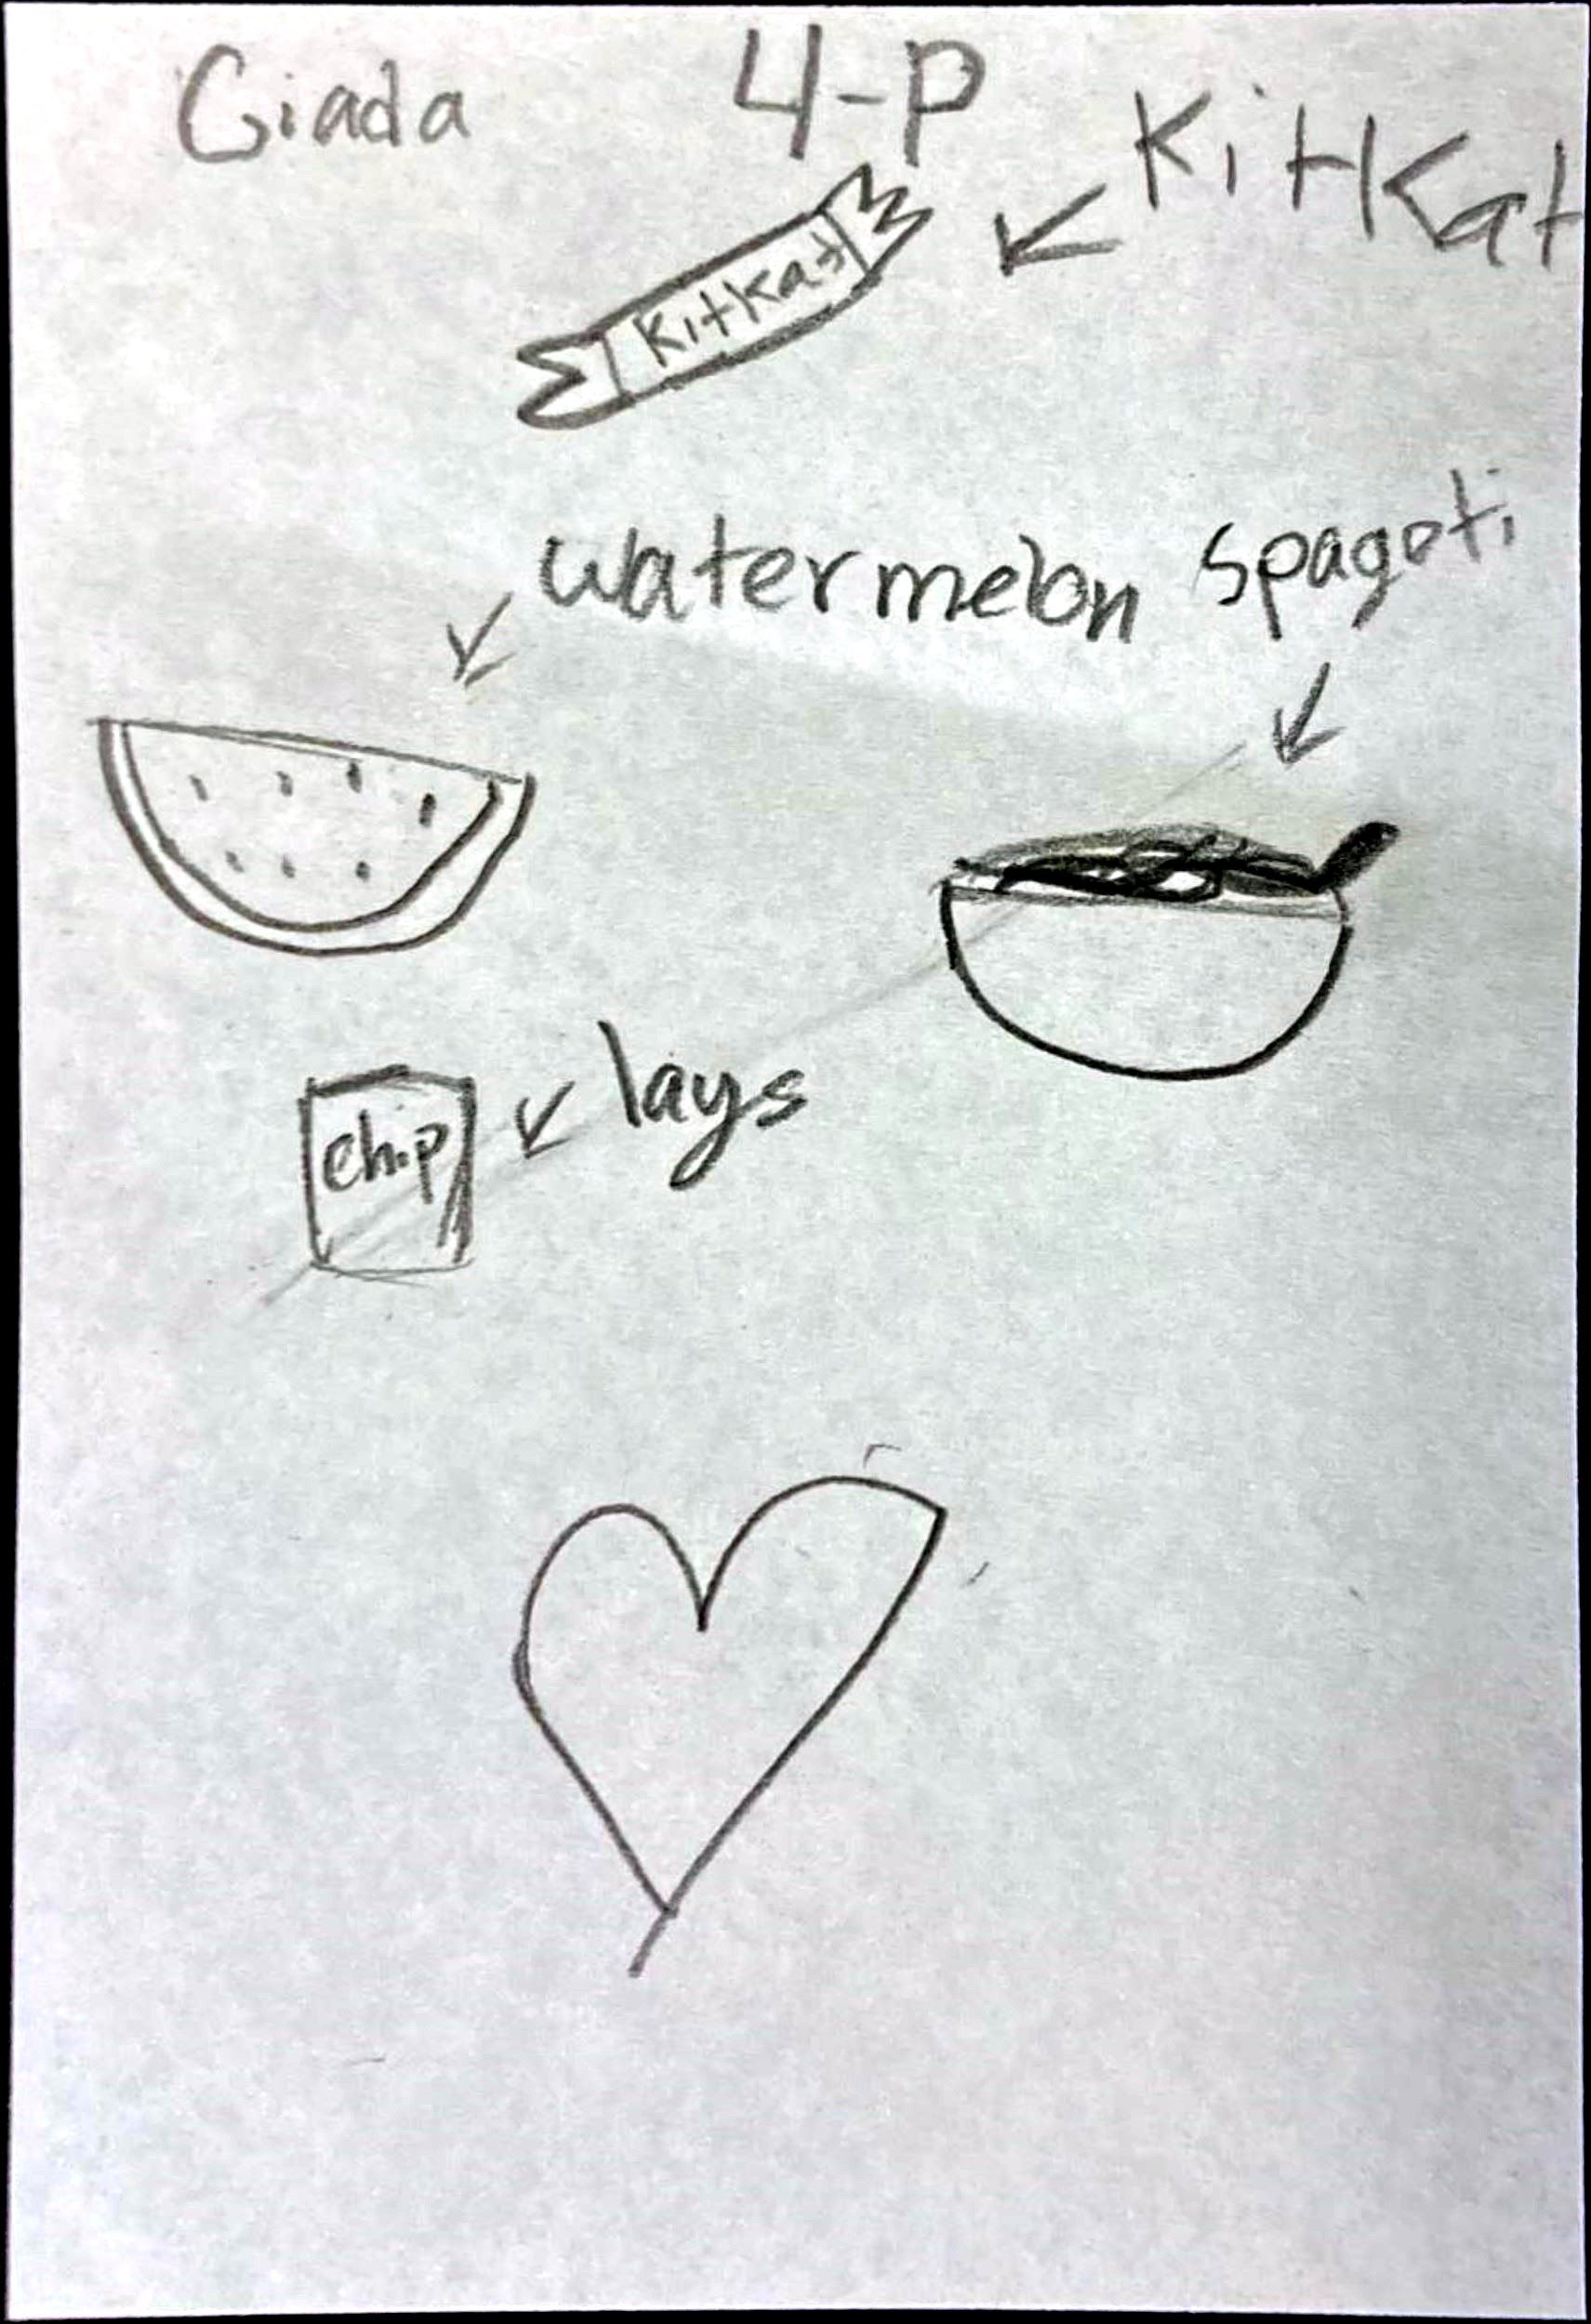 Giada 4-P
KitKat
KitKat
watermelon spagoti
lays
chip